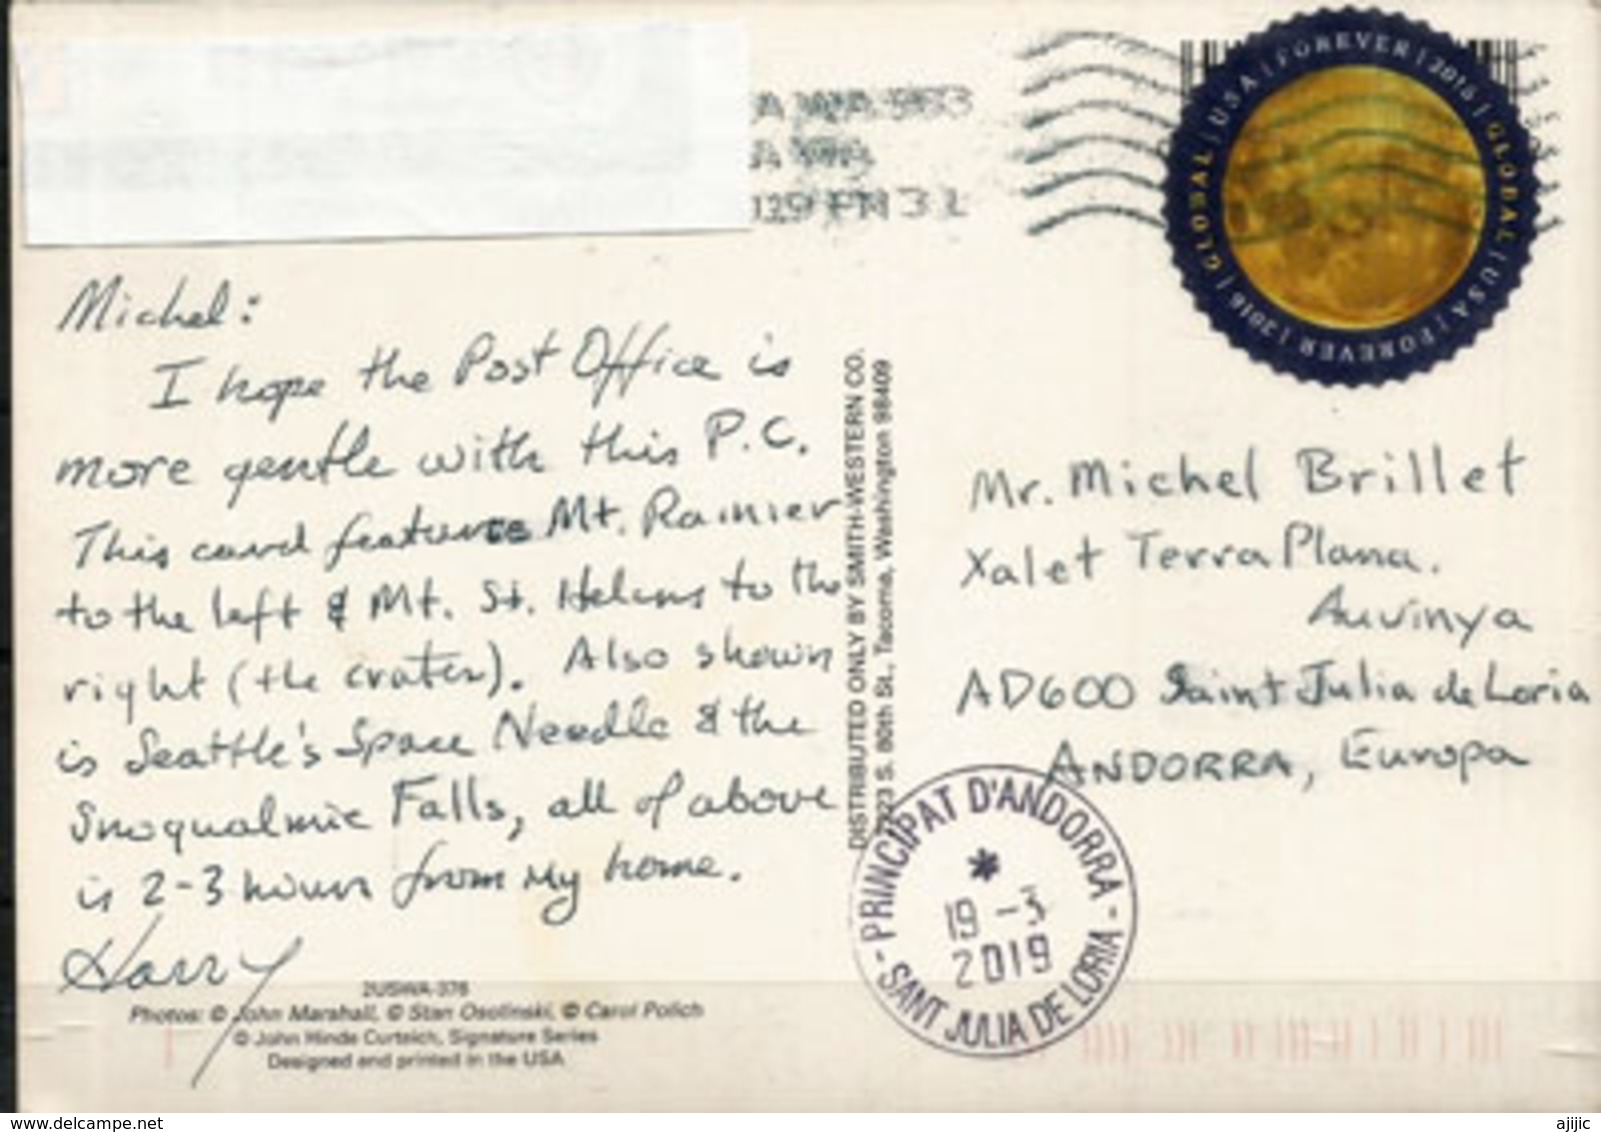 PM 31
USA | FOREVER | 2016 | GLOBAL | USA | FOREVER | 2016 | GLOBAL
Michel:
I hope the Post Office is
more gentle with this P.C.
This card features Mt. Rainier
to the left & Mt. St. Helens to the
right (the crater). Also shown
is Seattle's Space Needle & the
Snoqualmie Falls, all of above
is 2-3 hours from my home.
Harry
2USWA-376
Photos: © John Marshall, © Stan Osolinski, © Carol Polich
© John Hinde Curteich, Signature Series
Designed and printed in the USA
DISTRIBUTED ONLY BY SMITH-WESTERN CO.
S. 80th St., Tacoma, Washington 98409
Mr. Michel Brillet
Xalet Terra Plana.
Auvinya
AD600 Saint Julia de Loria
ANDORRA, Europa
PRINCIPAT D'ANDORRA
*
19 -3
2019
- SANT JULIA DE LORIA -
www.delcampe.net
ajijic